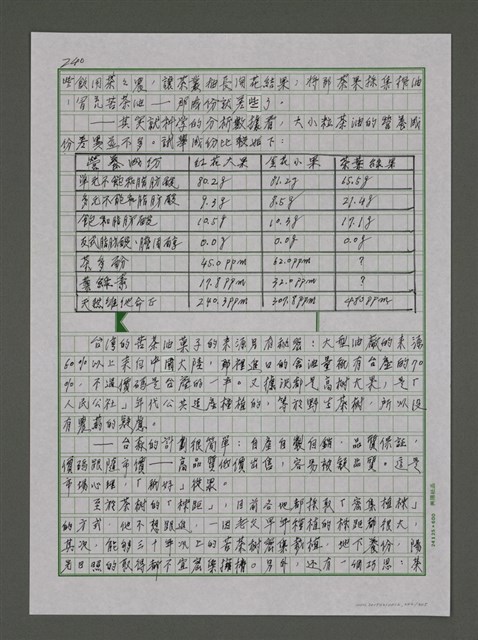 240
些飲用茶之農，讓茶葉抽長開花結果，將那茶果採集榨油
，冒充苦茶油——那成份就差些了。
——其實就科學的分析數據看，大小粒茶油的營養成
份差異並不多。試舉成份比較如下：
營養成份 紅花大果 金花小果 茶葉綠果
單元不飽和脂肪酸 80.2g 81.2g 65.5g
多元不飽和脂肪酸 9.3g 8.5g 21.4g
飽和脂肪酸 10.5g 10.3g 17.1g
反式脂肪酸、膽固醇 0.0g 0.0g 0.0g
茶多酚 45.0ppm 62.0ppm ?
葉綠素 17.8ppm 32.0ppm ?
天然維他命E 240.3ppm 307.8ppm 480ppm
台灣的苦茶油菓子的來源另有秘密：大型油廠的來源
60%以上來自中國大陸，那裡進口的含油量純有台產的70
%，不過價碼是台產的一半。又據說都是高樹大果，是「
人民公社」年代公共造產種植的，等於野生茶樹，所以沒
有農藥的疑慮。
——台森的計劃很簡單：自產自製自銷，品質保証，
價碼跟隨市價——高品質低價出售，容易被疑品質。這是
市場心理，「術好」後果。
至於茶樹的「株距」，目前各地都採取「密集植株」
的方式，他不想跟進，一因老父早年種植的株距都很大，
其次，能夠三十年以上的苦茶樹密集栽植，地下養份，陽
光日照的取得都不宜密集擁擠。另外，還有一個巧思：集